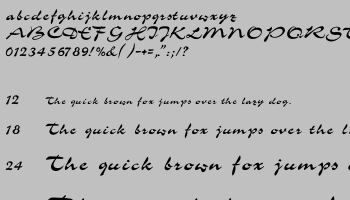 abcdefghijklmnopqrstuvwxyz
ABCDEFGHIJKLMNOPQRSTU
0123456789!%&()-+=,.":;/?
12 The quick brown fox jumps over the lazy dog.
18 The quick brown fox jumps over the l
24 The quick brown fox jumps